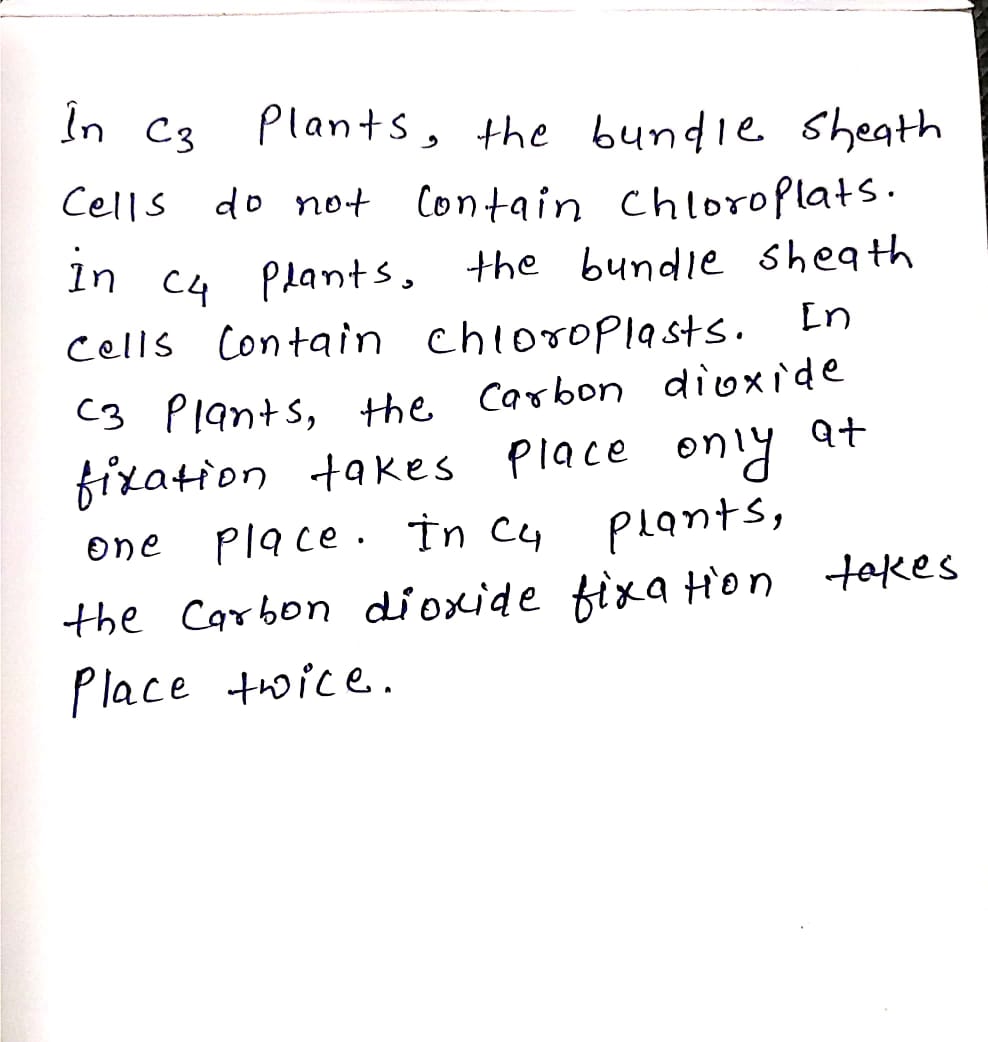 In C3 Plants, the bundle sheath
Cells do not Contain Chloroplats.
in C4 Plants, the bundle sheath
Cells Contain Chloroplasts. In
C3 Plants, the Carbon dioxide
fixation takes place only at
one place. In C4 plants,
the Carbon dioxide fixation takes
Place twice.